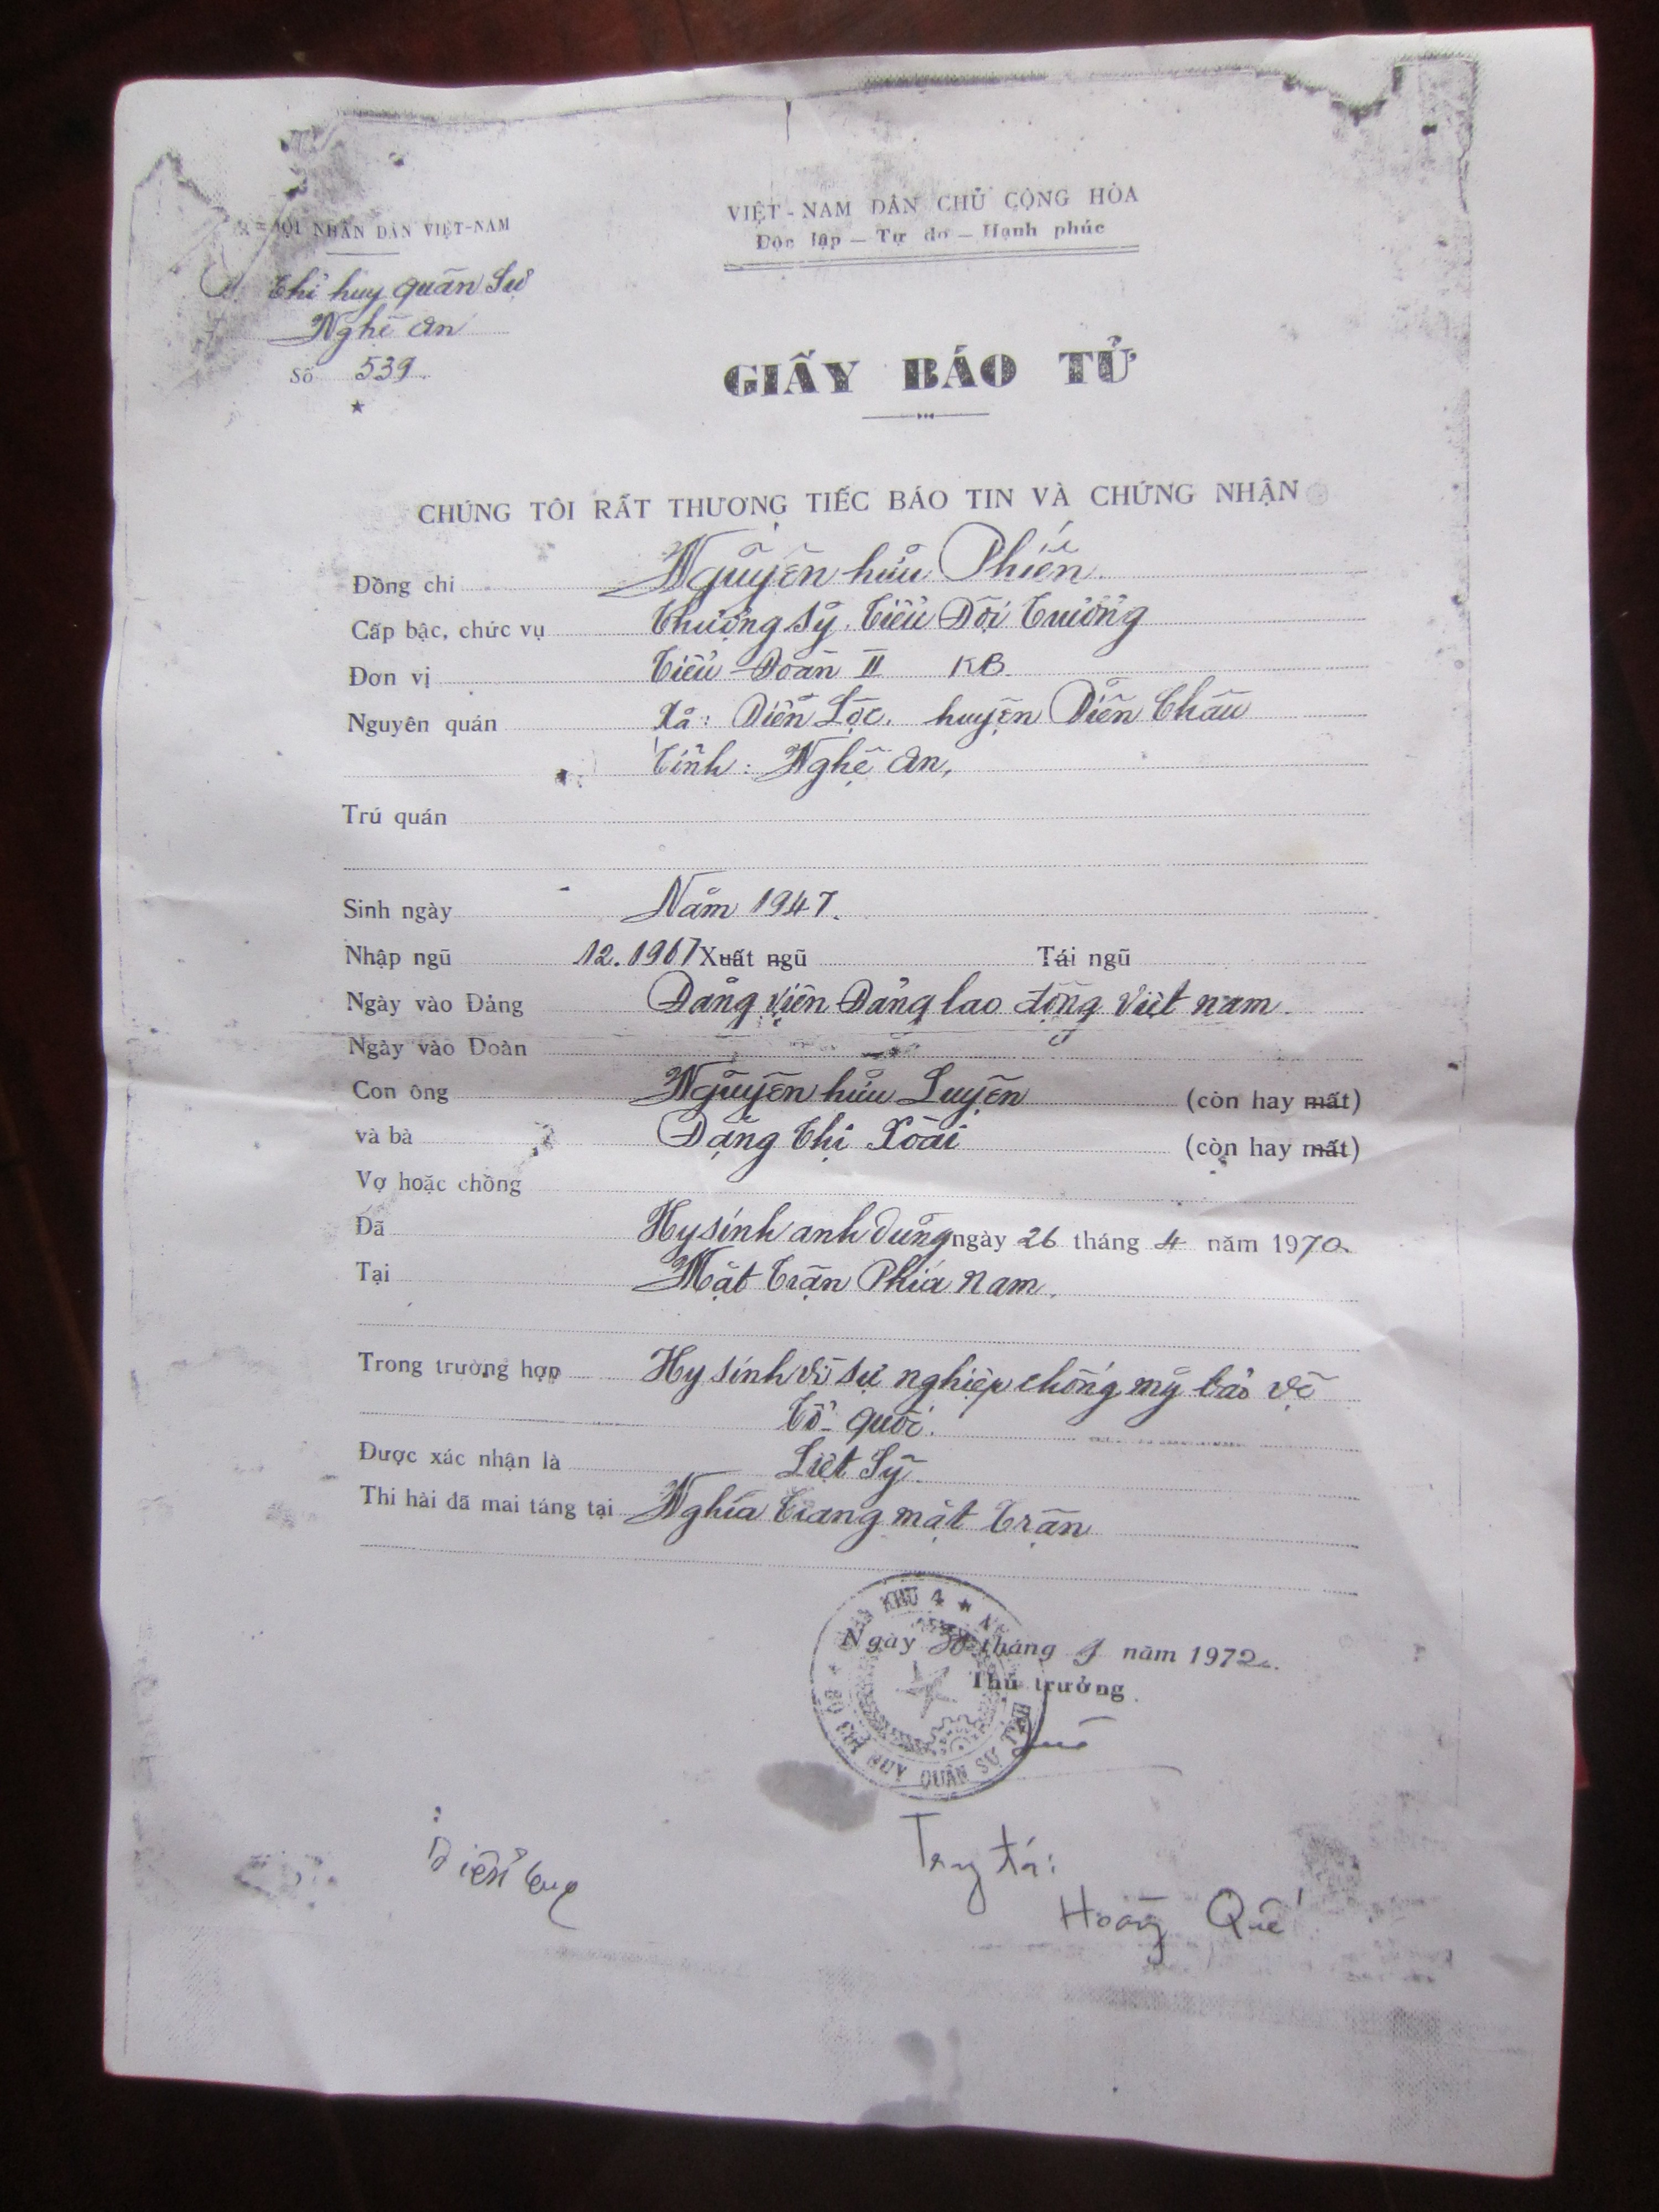 VIỆT-NAM DÂN CHỦ CỘNG HÒA
Độc lập — Tự do — Hạnh phúc
ĐỘI NHÂN DÂN VIỆT-NAM
Chỉ huy quân Sự
Nghệ An
Số 539
★
GIẤY BÁO TỬ
CHÚNG TÔI RẤT THƯƠNG TIẾC BÁO TIN VÀ CHỨNG NHẬN
Đồng chí Nguyễn hữu Phiến.
Cấp bậc, chức vụ Thượng sỹ. Tiểu Đội Trưởng
Đơn vị Tiểu Đoàn II KB
Nguyên quán Xã: Diễn Lộc. huyện Diễn Châu
Tỉnh: Nghệ An,
Trú quán
Sinh ngày Năm 1947.
Nhập ngũ 12.1967 Xuất ngũ Tái ngũ
Ngày vào Đảng Đảng viên Đảng lao động Việt nam.
Ngày vào Đoàn
Con ông Nguyễn hữu Luyện (còn hay mất)
và bà Đặng Thị Xoài (còn hay mất)
Vợ hoặc chồng
Đã Hy sinh anh dũng ngày 26 tháng 4 năm 1970.
Tại Mặt trận Phía nam.
Trong trường hợp Hy sinh vì sự nghiệp chống mỹ bảo vệ
Tổ quốc.
Được xác nhận là Liệt Sỹ.
Thi hài đã mai táng tại Nghĩa trang mặt trận
QUÂN KHU 4 ★
BỘ CHỈ HUY QUÂN SỰ TỈNH
Ngày tháng năm 1972.
Thủ trưởng
Quế
Trung tá:
Hoàng Quế